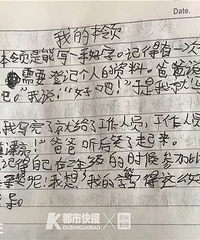 Date.
我的本领
本领是能写一手好字。记得有一次
需要登记个人的资料。爸爸说
记。"我说:"好吧!"于是我就
我写完了就给了工作人员,工作人员
爸爸听后笑了起来。
记得自己在 年级的时候参加比
我想,我的字 得这么
K 都市快报
DUSHIKUAIBAO